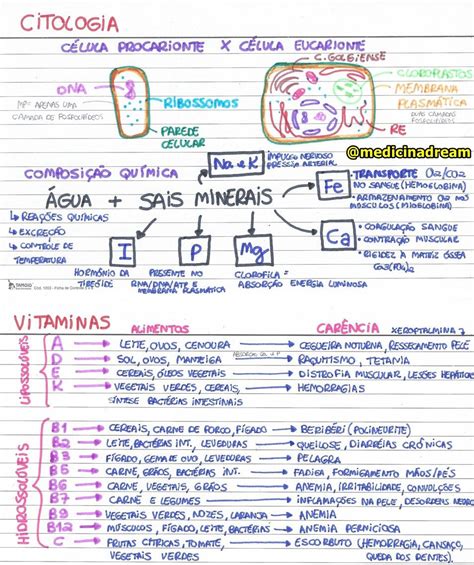 CITOLOGIA
CÉLULA PROCARIONTE X CÉLULA EUCARIONTE
C. GOLGIENSE
DNA
RIBOSSOMOS
CLOROPLASTOS
MEMBRANA
PLASMÁTICA
MP: APENAS UMA
CAMADA DE FOSFOLIPÍDIOS
PAREDE
CELULAR
DUAS CAMADAS
FOSFOLIPÍDIOS
RE
@medicinadream
COMPOSIÇÃO QUÍMICA
Na e K
IMPULSO NERVOSO
PRESSÃO ARTERIAL
ÁGUA + SAIS MINERAIS
Fe
• TRANSPORTE O2/CO2
NO SANGUE (HEMOGLOBINA)
• ARMAZENAMENTO O2 NOS
MÚSCULOS (MIOGLOBINA)
↳ REAÇÕES QUÍMICAS
↳ EXCREÇÃO
↳ CONTROLE DE
TEMPERATURA
I
P
Mg
Ca
• COAGULAÇÃO SANGUE
• CONTRAÇÃO MUSCULAR
• RIGIDEZ À MATRIZ ÓSSEA
HORMÔNIO DA
TIREÓIDE
PRESENTE NO
RNA/DNA/ATP E
MEMBRANA PLASMÁTICA
CLOROFILA =
ABSORÇÃO ENERGIA LUMINOSA
VITAMINAS
ALIMENTOS
CARÊNCIA
XEROFTALMINA
LIPOSSOLÚVEIS
A → LEITE, OVOS, CENOURA → CEGUEIRA NOTURNA, RESSECAMENTO PELE
D → SOL, OVOS, MANTEIGA → RAQUITISMO, TETANIA
E → CEREAIS, ÓLEOS VEGETAIS → DISTROFIA MUSCULAR, LESÕES HEPÁTICAS
K → VEGETAIS VERDES, CEREAIS, → HEMORRAGIAS
SÍNTESE BACTÉRIAS INTESTINAIS
HIDROSSOLÚVEIS
B1 → CEREAIS, CARNE DE PORCO, FÍGADO → BERIBÉRI (POLINEURITE)
B2 → LEITE, BACTÉRIAS INT., LEVEDURAS → QUEILOSE, DIARRÉIAS CRÔNICAS
B3 → FÍGADO, GEMA DE OVO, LEVEDURAS → PELAGRA
B5 → CARNE, GRÃOS, BACTÉRIAS INT. → FADIGA, FORMIGAMENTO MÃOS/PÉS
B6 → CARNE, VEGETAIS, GRÃOS → ANEMIA, IRRITABILIDADE, CONVULSÕES
B7 → CARNE E LEGUMES → INFLAMAÇÕES NA PELE, DESORDENS NERVO
B9 → VEGETAIS VERDES, NOZES, LARANJA → ANEMIA
B12 → MÚSCULOS, FÍGADO, LEITE, BACTÉRIAS → ANEMIA PERNICIOSA
C → FRUTAS CÍTRICAS, TOMATE, → ESCORBUTO (HEMORRAGIA, CANSAÇO,
VEGETAIS VERDES QUEDA DOS DENTES).